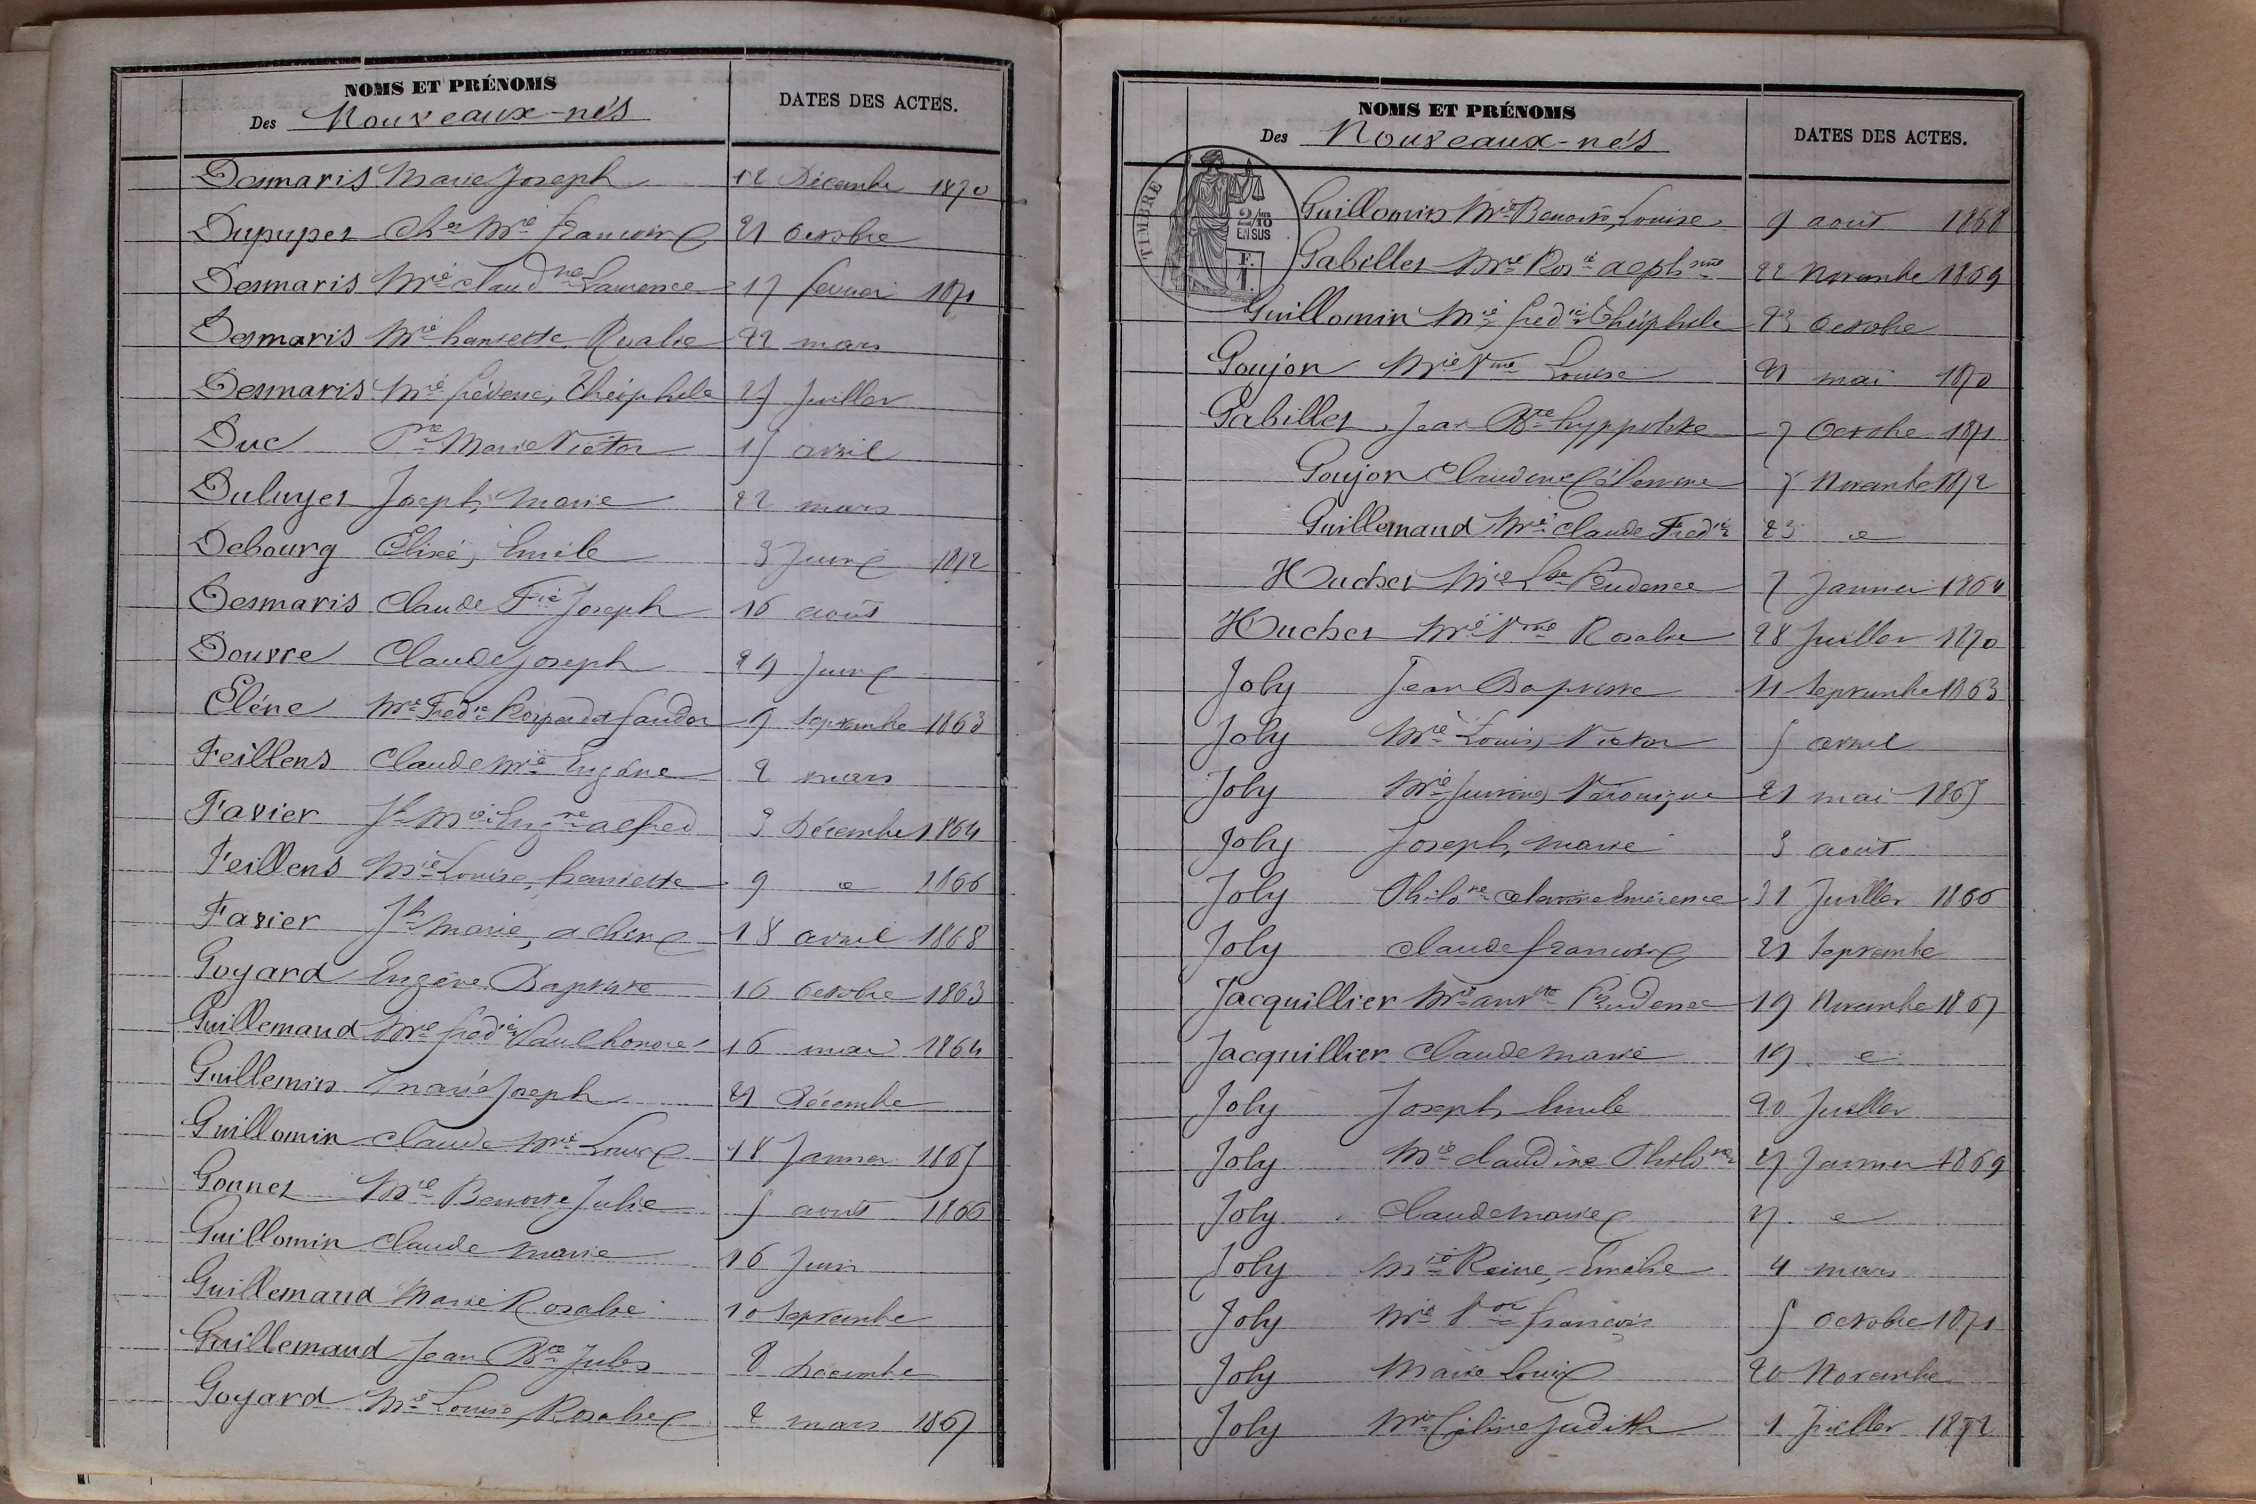 NOMS ET PRÉNOMS
Des Nouveaux-nés
DATES DES ACTES.
Desmaris Marie Joseph 12 Décembre 1870
Dupuyet Ches Mie francois 21 octobre
Desmaris Mie Claudne Laurence 17 fevrier 1871
Desmaris Mie hanriette Rosalie 22 mars
Desmaris Mie fréderic, Théophile 25 Juillet
Duc Pre Marie Victor 15 avril
Duluyet Joseph, Marie 22 mars
Debourg Elisé, Emile 3 Juin 1872
Desmaris Claude Fie Joseph 16 aout
Douvre Claude Joseph 29 Juin
Eléne Mie Fedie 9 septembre 1863
Feillens Claude Mie Eugène 2 mars
Favier Jh Mie Eugne alfred 3 Décembre 1864
Feillens Mie Louise, hanriette 9 e 1866
Favier Jh Marie, 18 avril 1868
Goyard Eugène Baptiste 16 octobre 1863
Guillemaud Mie frédie Paul honoré 16 mai 1864
Guillemin Marie Joseph 21 Décembre
Guillomin Claude Mie Louis 18 Janvier 1865
Gonnet Mie Benoite Julie 5 aout 1866
Guillomin Claude Marie 16 Juin
Guillemaud Marie Rosalie 10 septembre
Guillemaud Jean Bte Jules 8 Décembre
Goyard Mie Louise, Rosalie 2 mars 1867
NOMS ET PRÉNOMS
Des Nouveaux-nés
DATES DES ACTES.
TIMBRE
2/10
EN SUS
F.
1.
Guillomin Mie Benoite, Louise 9 aout 1868
Gabillet Mie Rosie alphsine 22 Novembre 1869
Guillomin Mie fredie Théophile 23 octobre
Goujon Mie Vine Louise 21 mai 1870
Gabillet Jean Bte hyppolite 7 Octobre 1871
Goujon Claudine 7 Novembre 1872
Guillemaud Mie Claude Fredie 23 e
Huchet Mie Lse Prudence 7 Janvier 1864
Huchet Mie Vine Rosalie 28 Juillet 1870
Joly Jean Baptiste 11 Septembre 1863
Joly Mie Louis, Victor 5 avril
Joly Mie Véronique 21 mai 1865
Joly Joseph, Marie 3 aout
Joly Philone Emérence 31 Juillet 1866
Joly Claude francois 21 Septembre
Jacquillier Mie Prudence 19 Novembre 1867
Jacquillier Claude Marie 19 e
Joly Joseph, Emile 20 Juillet
Joly Mie Claudine Philone 27 Janvier 1869
Joly Claude Marie 27 e
Joly Mie Reine, Emélie 4 mars
Joly Mie Vor francois 5 octobre 1871
Joly Marie Louis 20 Novembre
Joly Mie Céline Judith 1 Juillet 1872